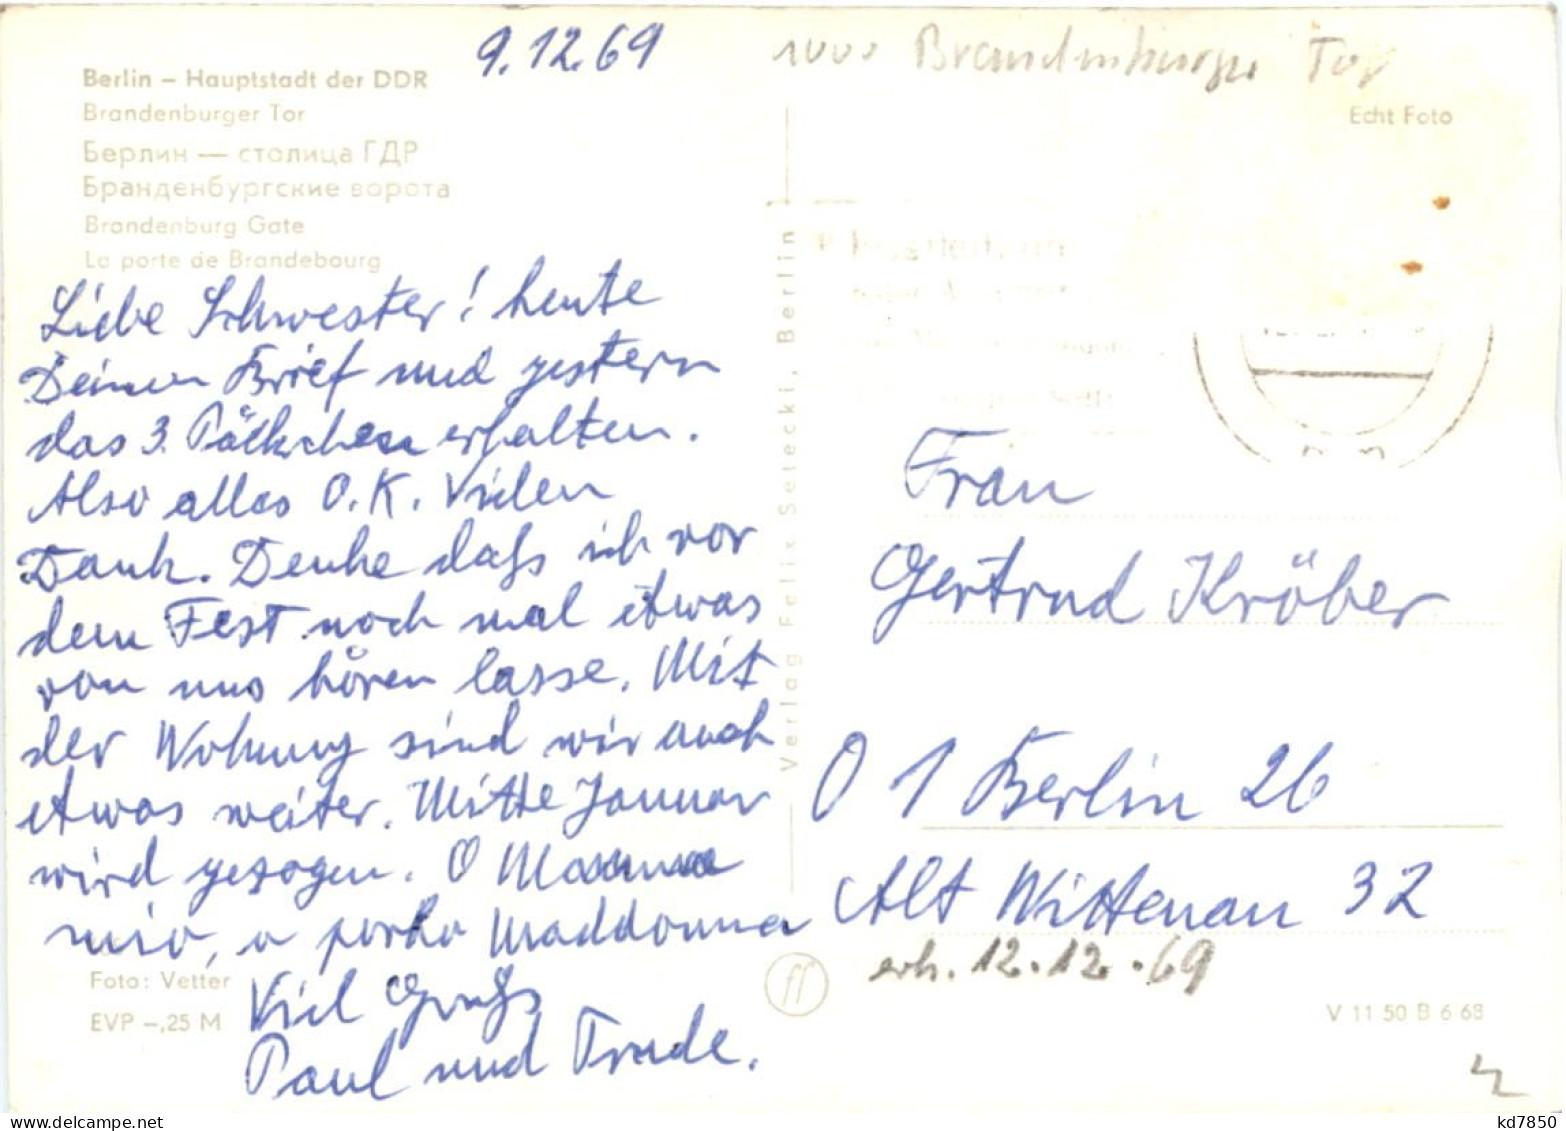 9.12.69
Brandenburger Tor
Berlin – Hauptstadt der DDR
Brandenburger Tor
Берлин — столица ГДР
Бранденбургские ворота
Brandenburg Gate
La porte de Brandebourg
Echt Foto
Liebe Schwester! heute
Deinen Brief und gestern
das 3. Päckchen erhalten.
Also alles O.K. Vielen
Dank. Denke daß ich vor
dem Fest noch mal etwas
von uns hören lasse. Mit
der Wohnung sind wir auch
etwas weiter. Mitte Januar
wird gezogen. O
mio, o porko Maddonna
Viel Gruß
Paul und Trude.
Foto: Vetter
EVP –,25 M
Verlag Felix Setecki, Berlin
Frau
Gertrud Kröber
O 1 Berlin 26
Alt Wittenau 32
erh. 12.12.69
V 11 50 B 6 68
kd7850